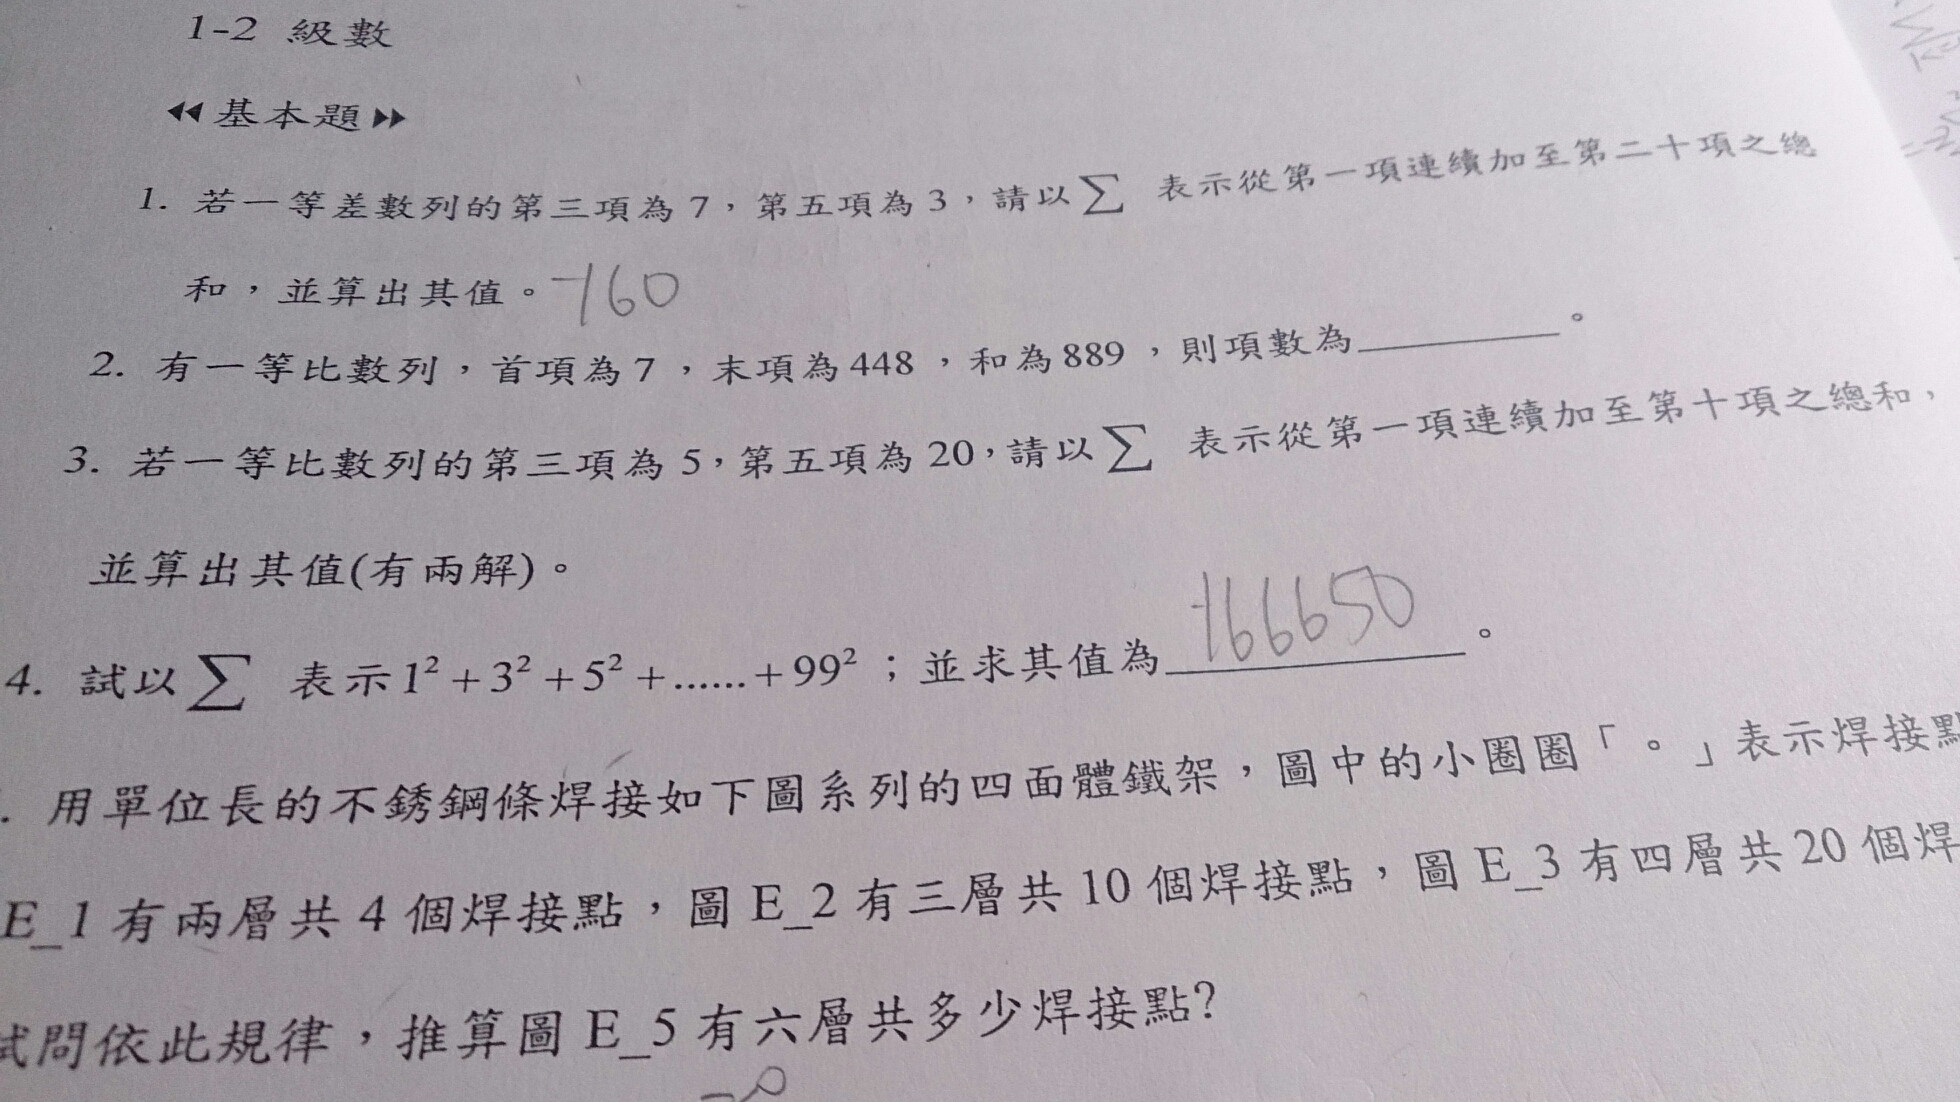 1-2 級數
基本題
1. 若一等差數列的第三項為 7，第五項為 3，請以∑ 表示從第一項連續加至第二十項之總
和，並算出其值。-160
2. 有一等比數列，首項為 7 ，末項為 448 ，和為 889 ，則項數為__________。
3. 若一等比數列的第三項為 5，第五項為 20，請以∑ 表示從第一項連續加至第十項之總和，
並算出其值(有兩解)。
4. 試以∑ 表示 1²+3²+5²+......+99² ；並求其值為 166650 。
. 用單位長的不銹鋼條焊接如下圖系列的四面體鐵架，圖中的小圈圈「。」表示焊接點
E_1 有兩層共 4 個焊接點，圖 E_2 有三層共 10 個焊接點，圖 E_3 有四層共 20 個焊
試問依此規律，推算圖 E_5 有六層共多少焊接點?